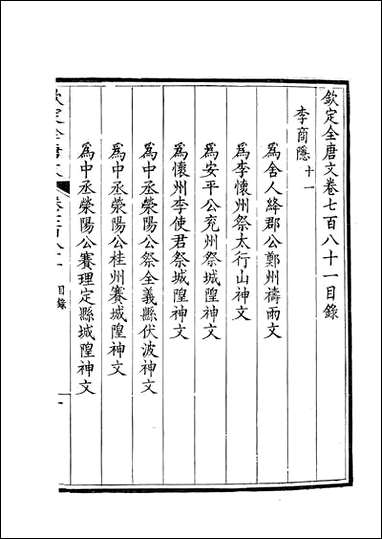 欽定全唐文卷七百八十一目錄
李商隱十一
爲舍人絳郡公鄭州禱雨文
爲李懷州祭太行山神文
爲安平公兗州祭城隍神文
爲懷州李使君祭城隍神文
爲中丞滎陽公祭全義縣伏波神文
爲中丞滎陽公桂州賽城隍神文
爲中丞滎陽公賽理定縣城隍神文
目錄